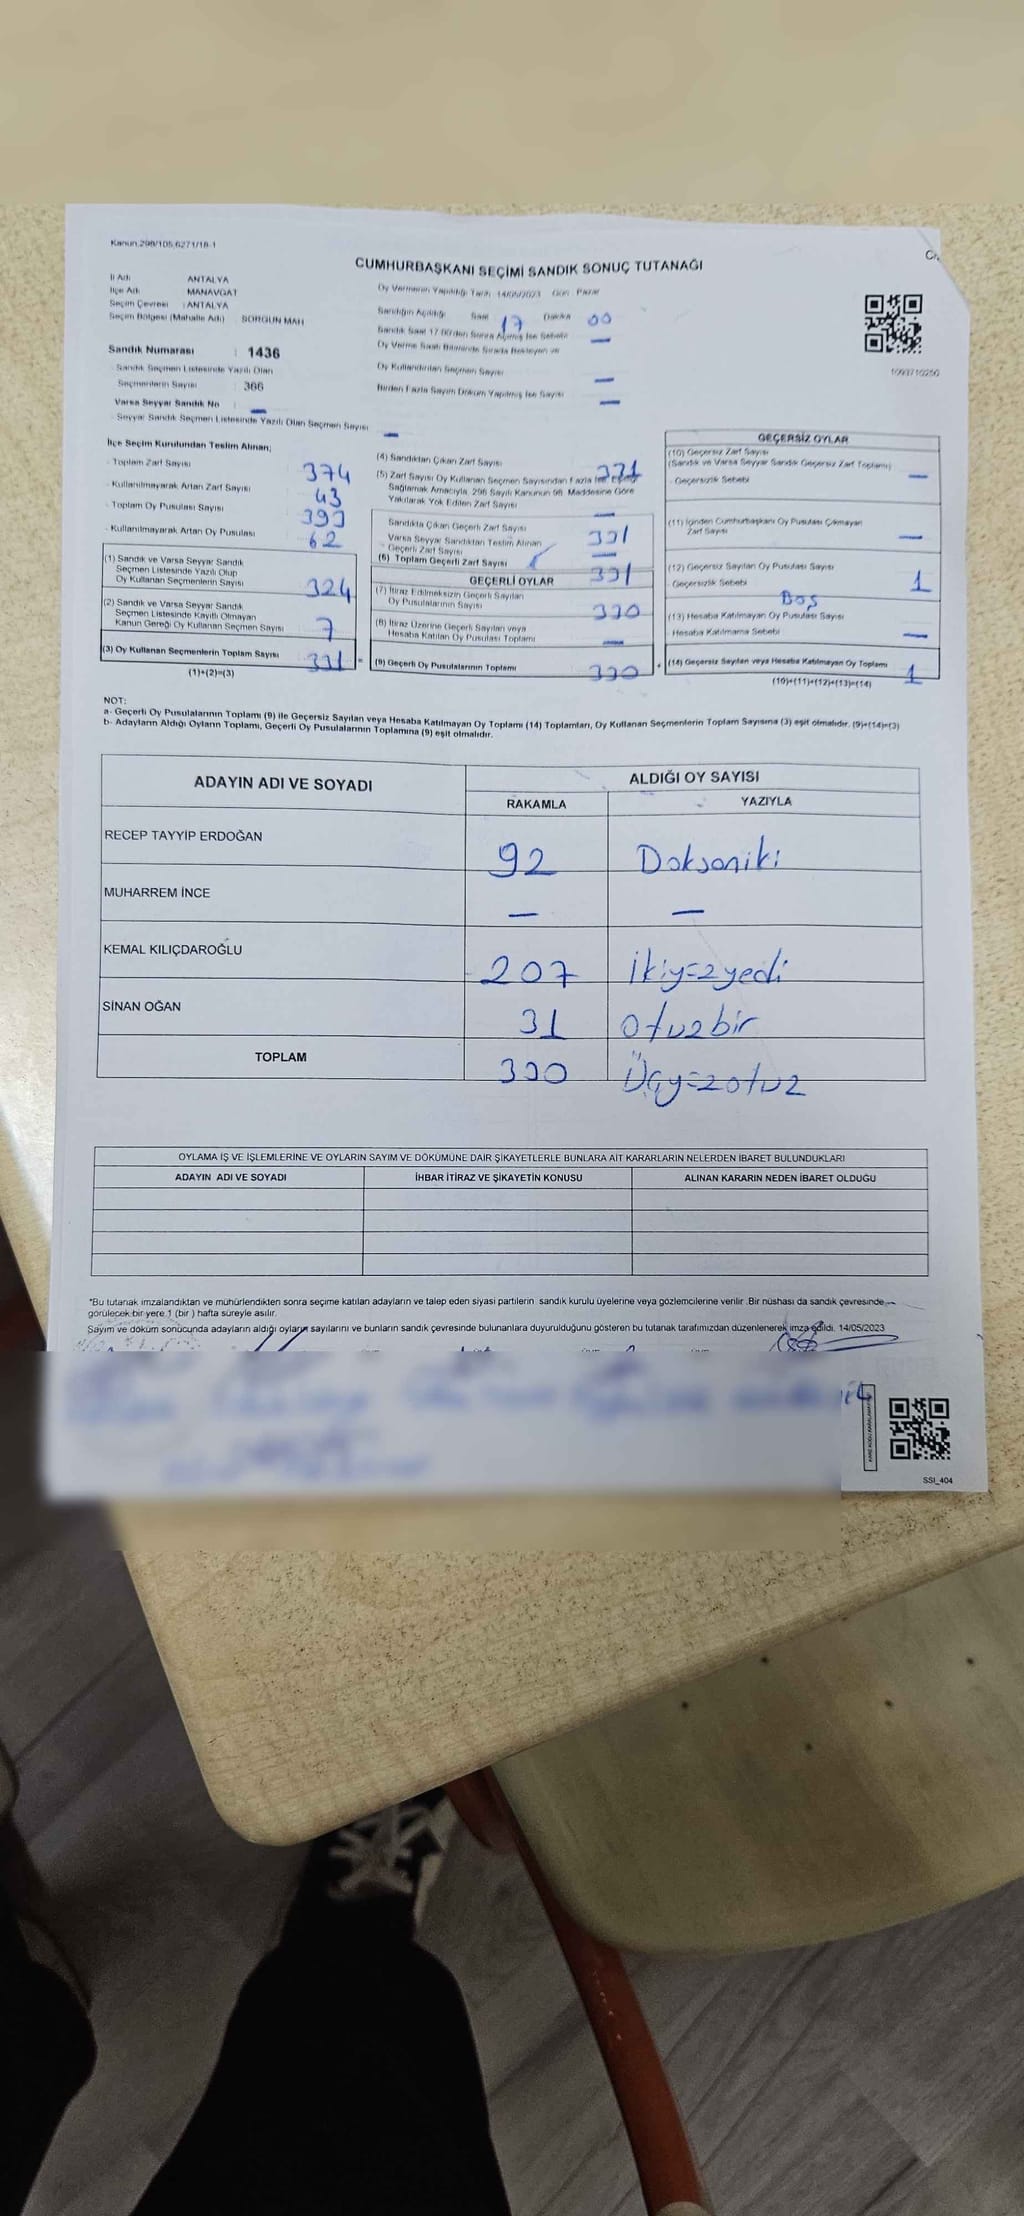 Kanun.298/105,6271/18-1
CUMHURBAŞKANI SEÇİMİ SANDIK SONUÇ TUTANAĞI
İl Adı ANTALYA
İlçe Adı MANAVGAT
Seçim Çevresi : ANTALYA
Seçim Bölgesi (Mahalle Adı) SORGUN MAH
Sandık Numarası : 1436
Sandık Seçmen Listesinde Yazılı Olan
Seçmenlerin Sayısı : 366
Varsa Seyyar Sandık No : —
Seyyar Sandık Seçmen Listesinde Yazılı Olan Seçmen Sayısı —
Oy Vermenin Yapıldığı Tarih 14/05/2023 Gün Pazar
Sandığın Açıldığı Saat 17 Dakika 00
Sandık Saat 17.00'den Sonra Açılmış İse Sebebi —
Oy Verme Saati Bitiminde Sırada Bekleyen ve
Oy Kullandırılan Seçmen Sayısı —
Birden Fazla Sayım Döküm Yapılmış İse Sayısı —
1093710250
İlçe Seçim Kurulundan Teslim Alınan;
Toplam Zarf Sayısı 374
Kullanılmayarak Artan Zarf Sayısı 43
Toplam Oy Pusulası Sayısı 393
Kullanılmayarak Artan Oy Pusulası 62
(1) Sandık ve Varsa Seyyar Sandık
Seçmen Listesinde Yazılı Olup
Oy Kullanan Seçmenlerin Sayısı 324
(2) Sandık ve Varsa Seyyar Sandık
Seçmen Listesinde Kayıtlı Olmayan
Kanun Gereği Oy Kullanan Seçmen Sayısı 7
(3) Oy Kullanan Seçmenlerin Toplam Sayısı 331 =
(1)+(2)=(3)
(4) Sandıktan Çıkan Zarf Sayısı 331
(5) Zarf Sayısı Oy Kullanan Seçmen Sayısından Fazla İse Eşitliği
Sağlamak Amacıyla, 298 Sayılı Kanunun 98. Maddesine Göre
Yakılarak Yok Edilen Zarf Sayısı —
Sandıkta Çıkan Geçerli Zarf Sayısı 331
Varsa Seyyar Sandıktan Teslim Alınan
Geçerli Zarf Sayısı —
(6) Toplam Geçerli Zarf Sayısı 331
GEÇERLİ OYLAR
(7) İtiraz Edilmeksizin Geçerli Sayılan
Oy Pusulalarının Sayısı 330
(8) İtiraz Üzerine Geçerli Sayılan veya
Hesaba Katılan Oy Pusulası Toplamı —
(9) Geçerli Oy Pusulalarının Toplamı 330 +
GEÇERSİZ OYLAR
(10) Geçersiz Zarf Sayısı
(Sandık ve Varsa Seyyar Sandık Geçersiz Zarf Toplamı) —
Geçersizlik Sebebi
(11) İçinden Cumhurbaşkanı Oy Pusulası Çıkmayan
Zarf Sayısı —
(12) Geçersiz Sayılan Oy Pusulası Sayısı 1
Geçersizlik Sebebi Boş
(13) Hesaba Katılmayan Oy Pusulası Sayısı —
Hesaba Katılmama Sebebi
(14) Geçersiz Sayılan veya Hesaba Katılmayan Oy Toplamı 1
(10)+(11)+(12)+(13)=(14)
NOT:
a- Geçerli Oy Pusulalarının Toplamı (9) ile Geçersiz Sayılan veya Hesaba Katılmayan Oy Toplamı (14) Toplamları, Oy Kullanan Seçmenlerin Toplam Sayısına (3) eşit olmalıdır. (9)+(14)=(3)
b- Adayların Aldığı Oyların Toplamı, Geçerli Oy Pusulalarının Toplamına (9) eşit olmalıdır.
ADAYIN ADI VE SOYADI ALDIĞI OY SAYISI
RAKAMLA YAZIYLA
RECEP TAYYİP ERDOĞAN 92 Doksaniki
MUHARREM İNCE — —
KEMAL KILIÇDAROĞLU 207 İkiyüzyedi
SİNAN OĞAN 31 Otuzbir
TOPLAM 330 Üçyüzotuz
OYLAMA İŞ VE İŞLEMLERİNE VE OYLARIN SAYIM VE DÖKÜMÜNE DAİR ŞİKAYETLERLE BUNLARA AİT KARARLARIN NELERDEN İBARET BULUNDUKLARI
ADAYIN ADI VE SOYADI İHBAR İTİRAZ VE ŞİKAYETİN KONUSU ALINAN KARARIN NEDEN İBARET OLDUĞU
*Bu tutanak imzalandıktan ve mühürlendikten sonra seçime katılan adayların ve talep eden siyasi partilerin sandık kurulu üyelerine veya gözlemcilerine verilir .Bir nüshası da sandık çevresinde
görülecek bir yere 1 (bir ) hafta süreyle asılır.
Sayım ve döküm sonucunda adayların aldığı oyların sayılarını ve bunların sandık çevresinde bulunanlara duyurulduğunu gösteren bu tutanak tarafımızdan düzenlenerek imza edildi. 14/05/2023
SSI_404